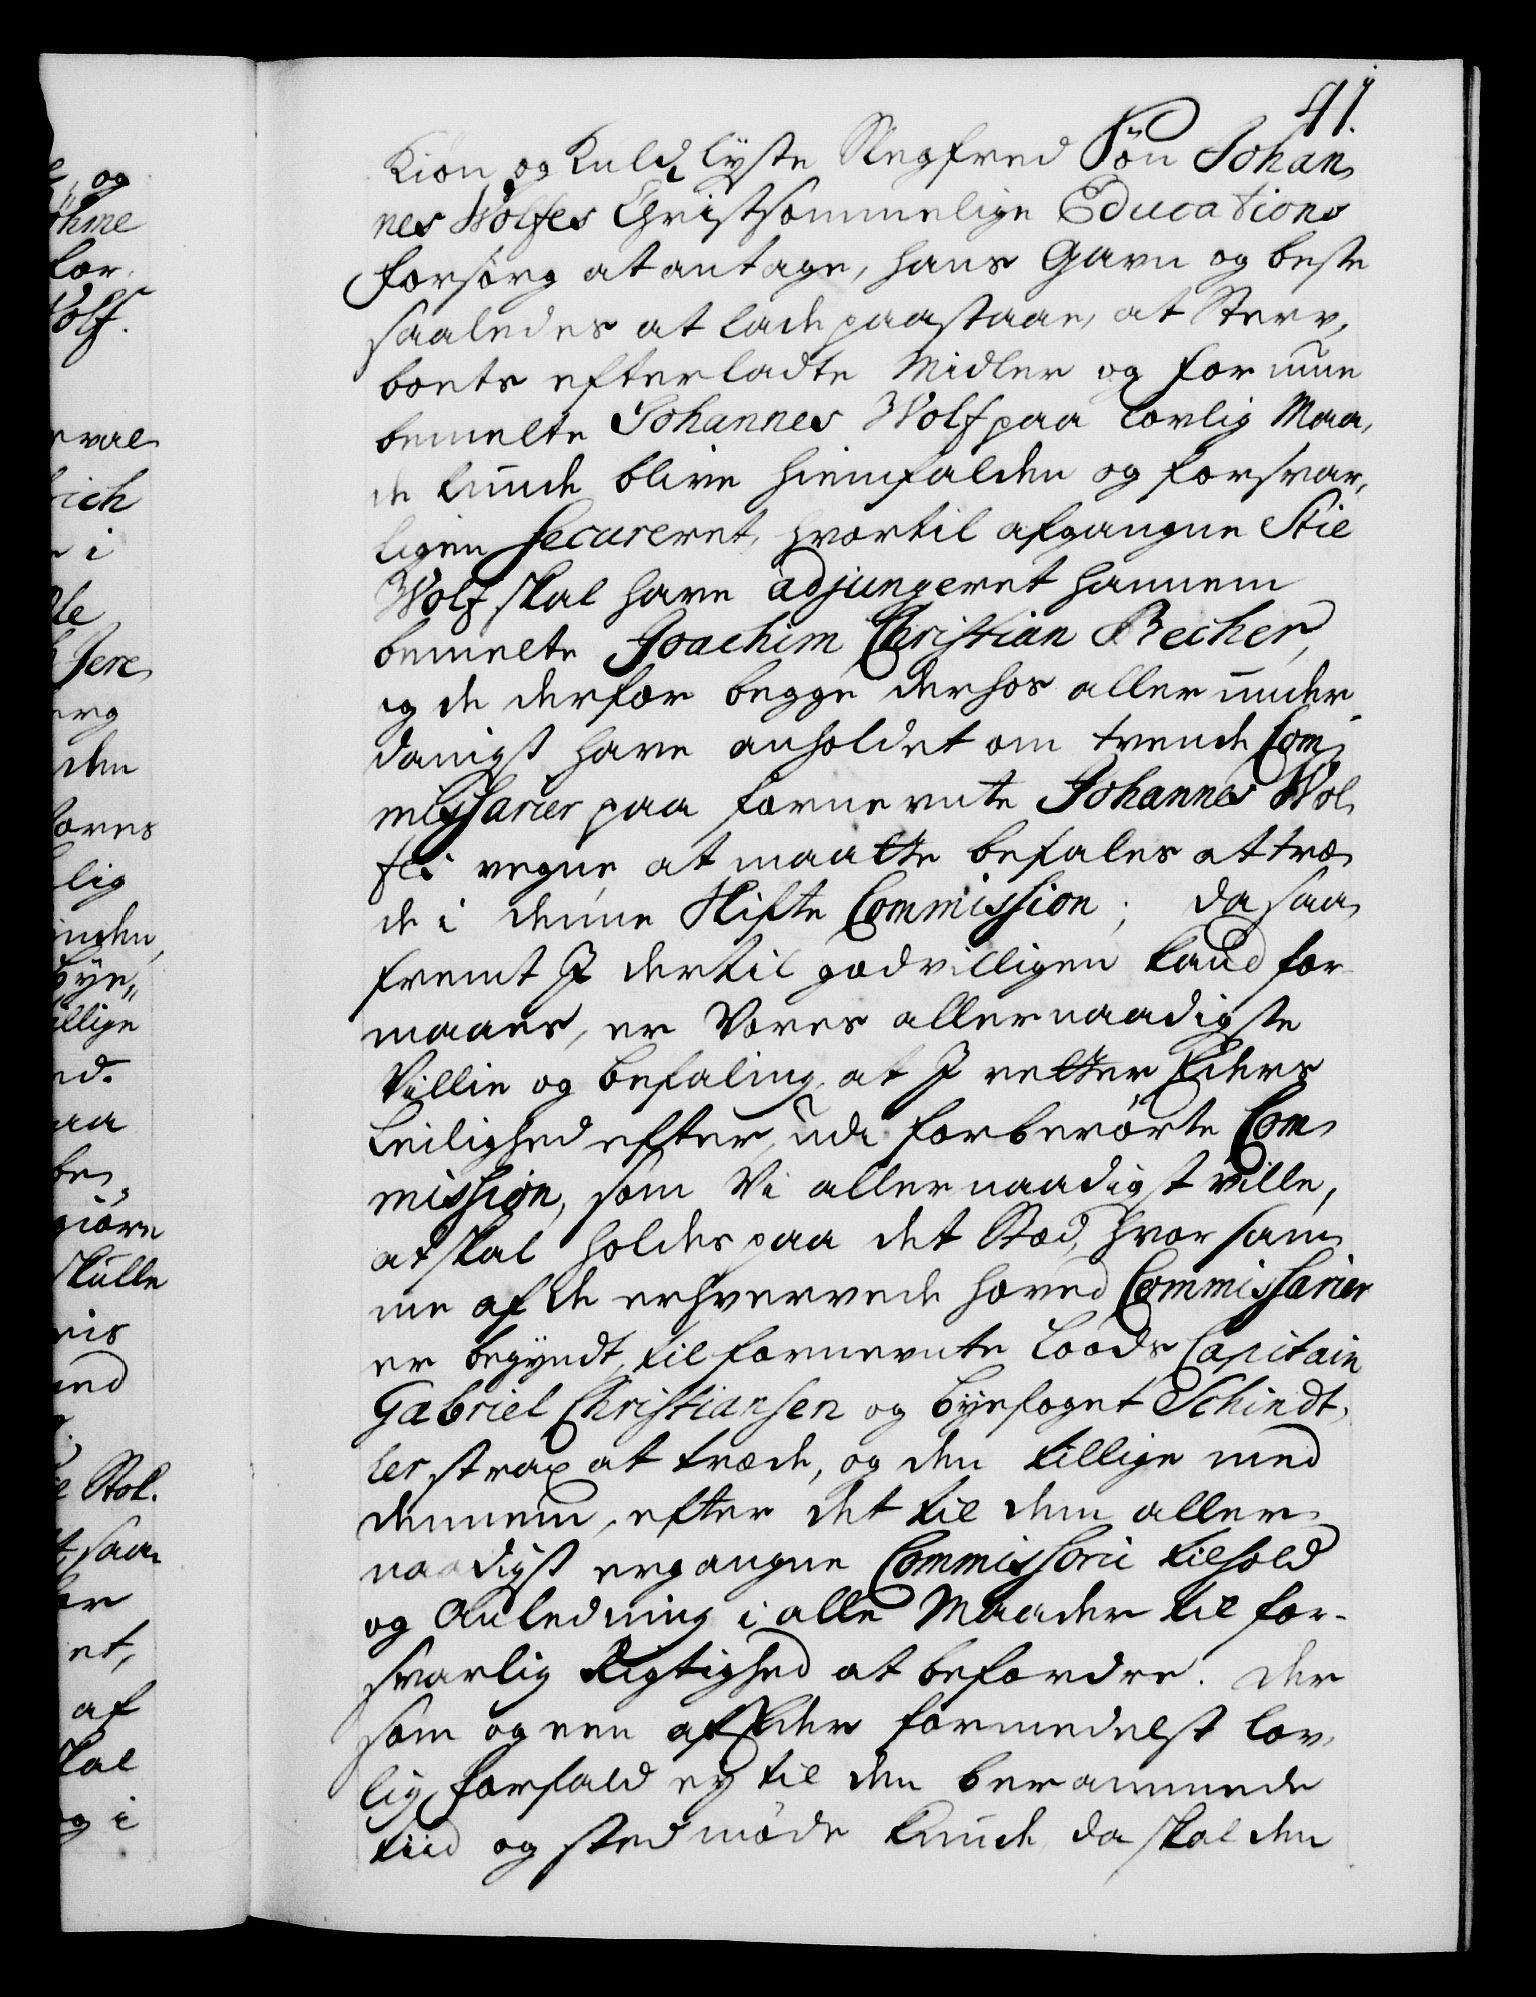 41.
Kiön og Kuldlyste Slegfred Søn Johan,
nes Wolfes Christsømmelige Educations
forsorg at antage, hans Gavn og beste
saaledes at lade paastaae, at Sterv,
boets efterladte Midler og formue
bemelte Johannes Wolf paa lovlig Maa,
de kunde blive hiemfalden og forsvar,
ligen Secureret, hvortil afgangne Stie
Wolf skal have adjungeret hannem
bemelte Joachim Christian Becher,
og de derfor begge derhos allerunder
danigst have anholdet om tvende Com,
missarier paa fornevnte Johannes Wol,
fes vegne at maatte befales at træ,
de i denne Skifte Commission; da saa,
fremt I dertil godvilligen kand for
maaes, er Vores allernaadigste
Villie og befaling, at I retter Eders
Leilighed efter, udi forberørte Com,
mission, som Vi allernaadigst ville,
at skal holdes paa det Stæd, hvor sam,
me af de erhvervede hoved Commissarier
er begyndt, til fornevnte Loods Capitain
Gabriel Christiansen og Byefoget Schindt,
ler strax at træde, og den tillige med
dennem, efter det til dem aller,
naadigst ergangne Commissorii tilhold
og Anledning i alle Maader til for-
svarlig Rigtighed at befordre. Der
som og een af Eder formedelst lov,
lig forfald ey til den berammede
tiid og sted møde kunde, da skal den